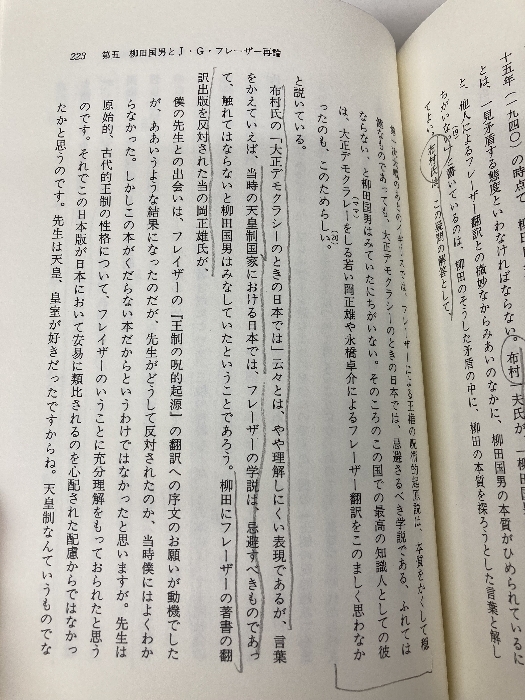 十五年（一九四〇）の時点で、柳田
とは、一見矛盾する態度といわなければならない。布村一夫氏が、「柳田
と、他人によるフレーザー翻訳との微妙なからみあいのなかに、柳田国男の本質がひめられているに
ちがいない」[19]と書いているのは、柳田のそうした矛盾の中に、柳田の本質を探ろうとした言葉と解し
てよい。布村氏は、この疑問の解答として、
第一次大戦のあとのイギリスでは、フレーザーによる王権の呪術的起源説は、本質をかくして穏
健なものであっても、大正デモクラシーのときの日本では、忌避さるべき学説である、ふれては
ならない、と柳田国男はみていたにちがいない。そのころのこの国での最高の知識人としての彼
は、大正デモクラレー（ママ）をしる若い岡正雄や永橋卓介によるフレーザー翻訳をこのましく思わなか
ったのも、このためらしい。[20]
と説いている。
布村氏の「大正デモクラシーのときの日本では」云々とは、やや理解しにくい表現であるが、言葉
をかえていえば、当時の天皇制国家における日本では、フレーザーの学説は、忌避すべきものであっ
て、触れてはならないと柳田国男はみなしていたということであろう。柳田にフレーザーの著書の翻
訳出版を反対された当の岡正雄氏が、
僕の先生との出会いは、フレイザーの『王制の呪的起源』の翻訳への序文のお願いが動機でした
が、ああいうような結果になったのだが、先生がどうして反対されたのか、当時僕にはよくわか
らなかった。しかしこの本がくだらない本だからというわけではなかったと思いますが。先生は
原始的、古代的王制の性格について、フレイザーのいうことに充分理解をもっておられたと思う
のです。それでこの日本版が日本において安易に類比されるのを心配された配慮からではなかっ
たかと思うのです。先生は天皇、皇室が好きだったですからね。天皇制なんていうものでな
223 第五 柳田国男とJ・G・フレーザー再論